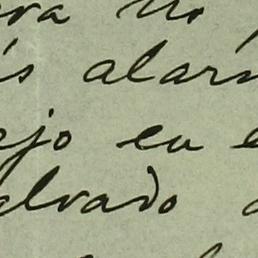 ra no
ís alarm
ejo en e
alvado a